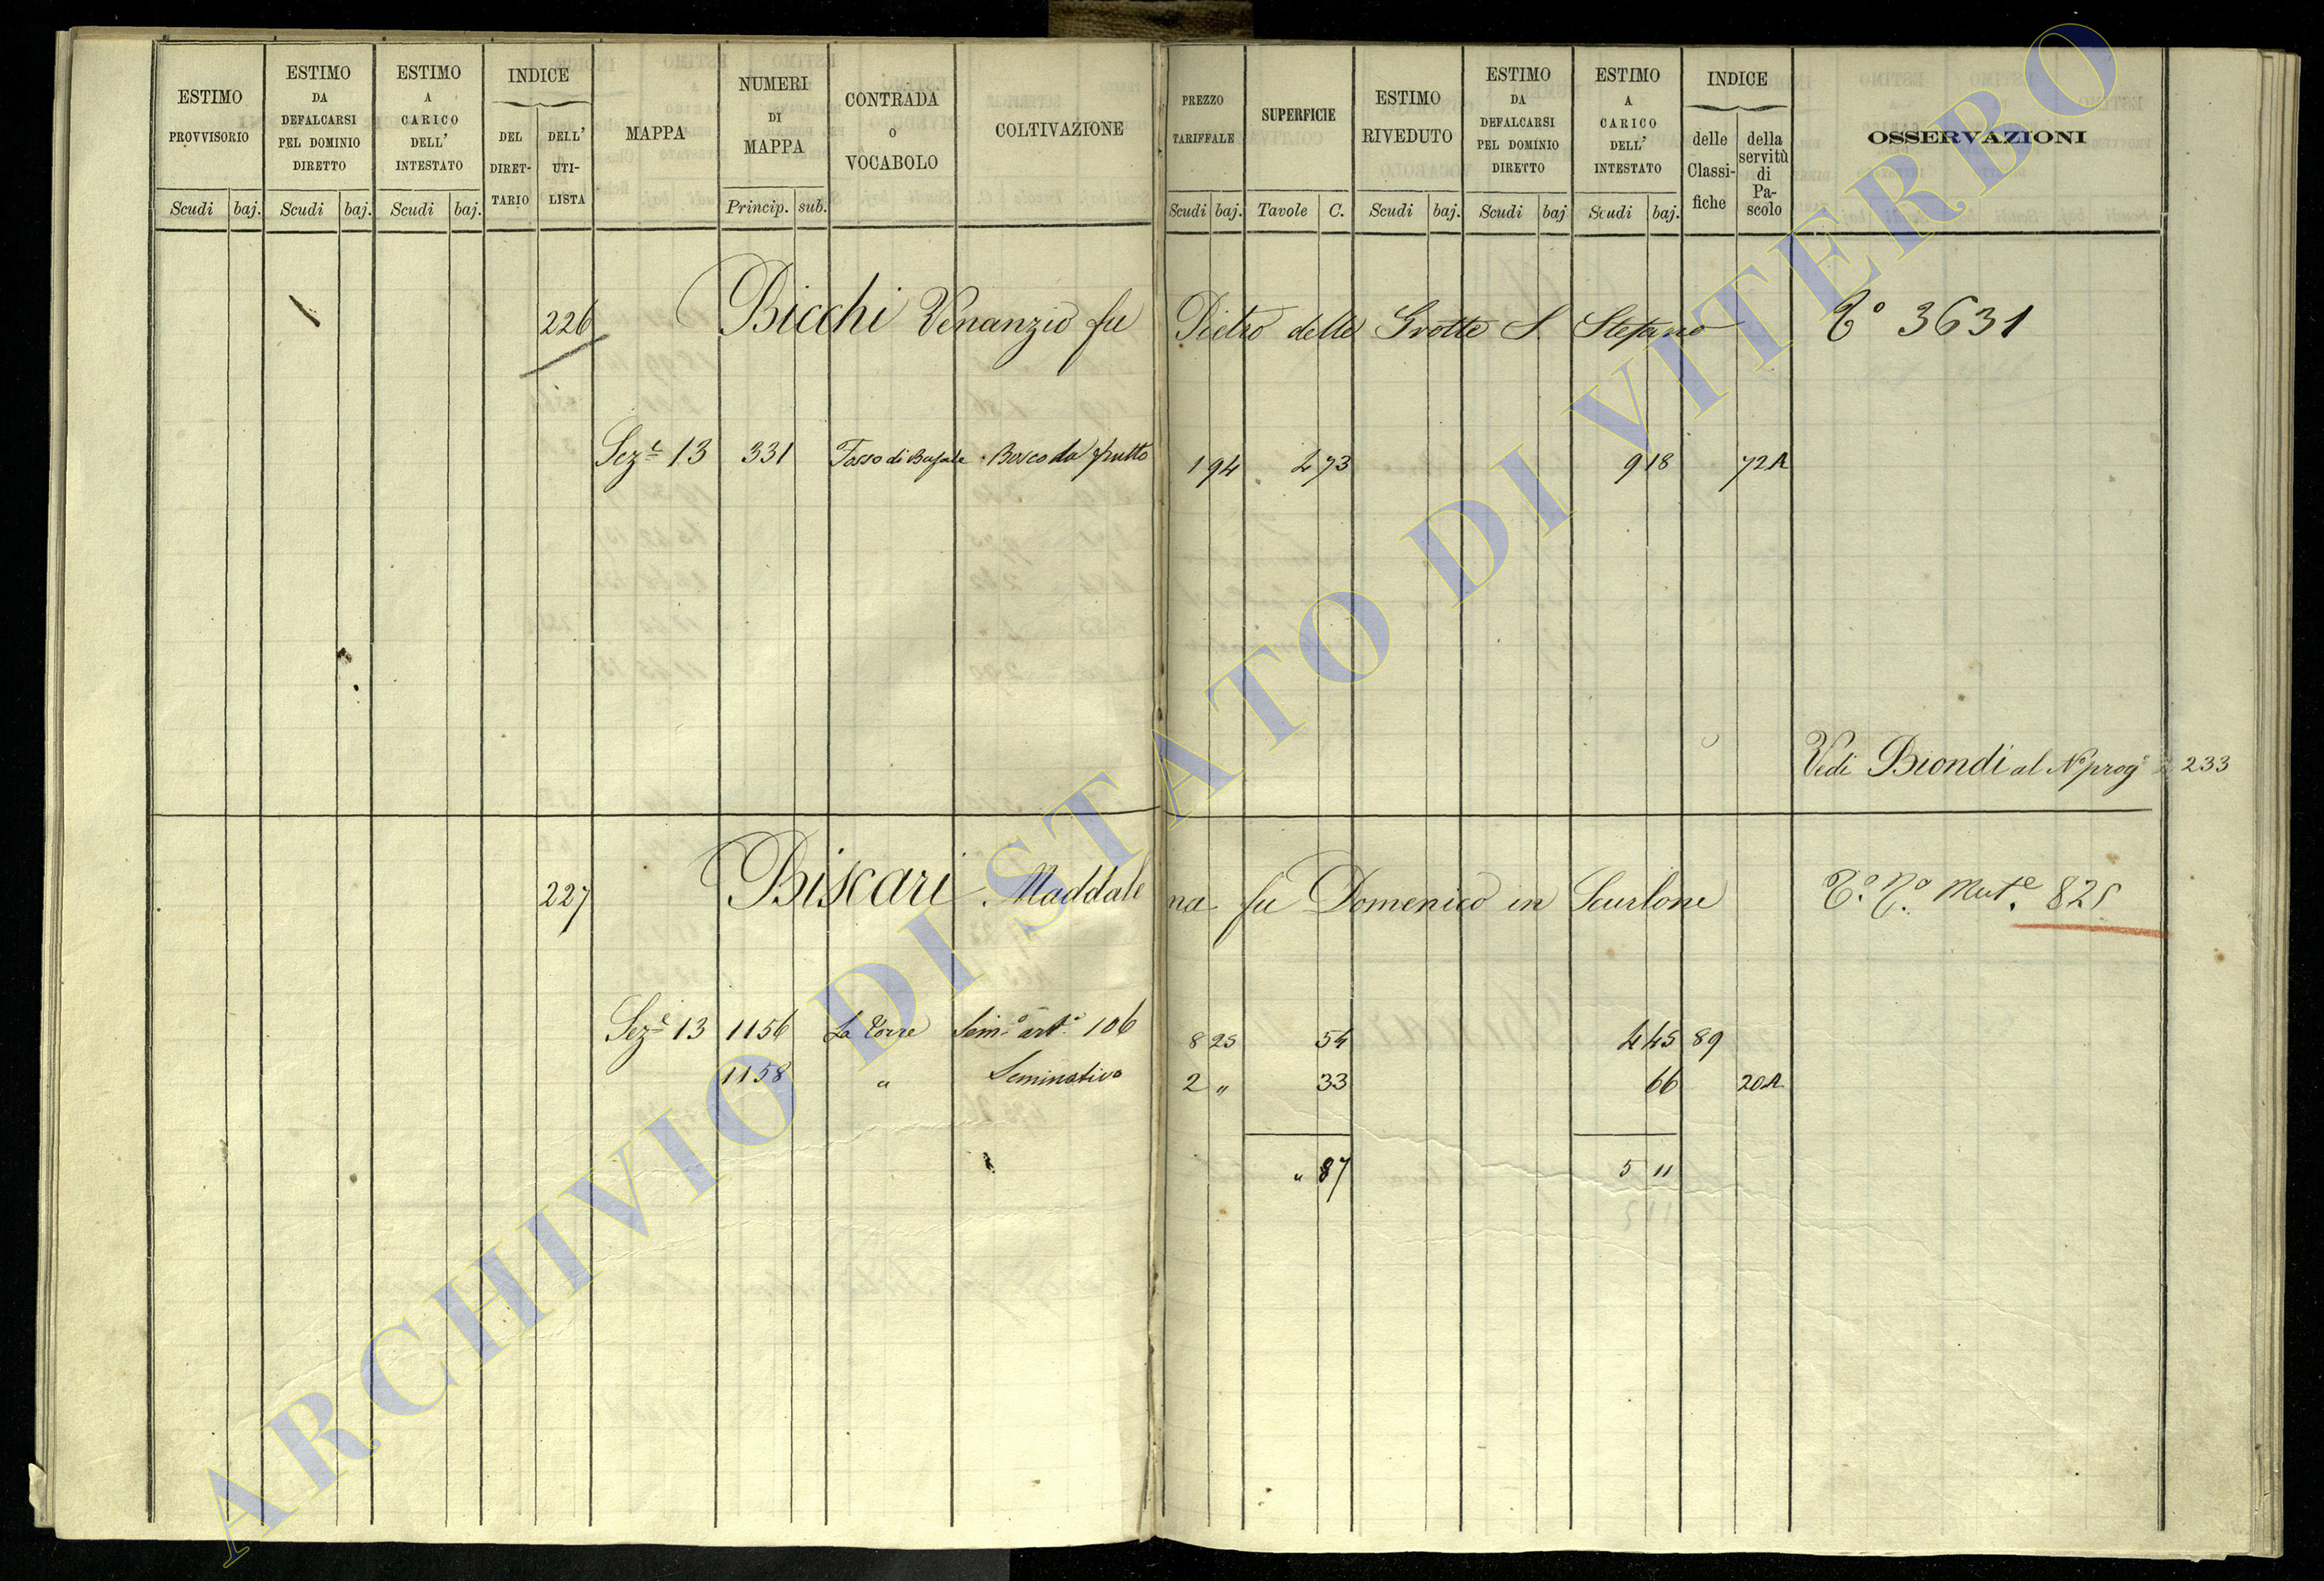 ESTIMO PROVVISORIO
ESTIMO DA DEFALCARSI PEL DOMINIO DIRETTO
ESTIMO A CARICO DELL' INTESTATO
INDICE
DEL DIRETTARIO
DELL' UTILISTA
MAPPA
NUMERI DI MAPPA
CONTRADA O VOCABOLO
COLTIVAZIONE
PREZZO TARIFFALE
SUPERFICIE
ESTIMO RIVEDUTO
ESTIMO DA DEFALCARSI PEL DOMINIO DIRETTO
ESTIMO A CARICO DELL' INTESTATO
INDICE
delle Classifiche
della servitù di Pascolo
OSSERVAZIONI
Scudi baj. Scudi baj. Scudi baj. Princip. sub. Scudi baj. Tavole C. Scudi baj. Scudi baj Scudi baj.
226 Bicchi Venanzio fu Pietro delle Grotte S. Stefano 3631
Sez.e 13 331 Fosso di Bosco da frutto 1 94 4 73 9 18 72A
Vedi Biondi al N° prog.e 233
227 Biscari Maddalena fu Domenico in Scurlone Mut.e 825
Sez.e 13 1156 La Torre Sem.o art.o 106 8 25 54 4 45 89
1158 " Seminativo 2 " 33 66 20A
" 87 5 11
ARCHIVIO DI STATO DI VITERBO